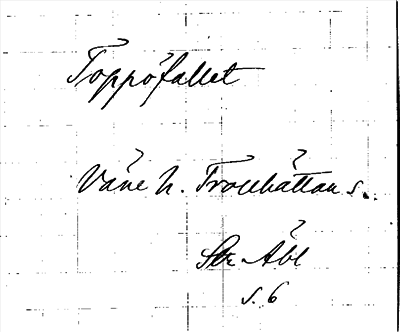 Toppöfallet
Väne h. Trollhättan s.
Äbl
s. 6